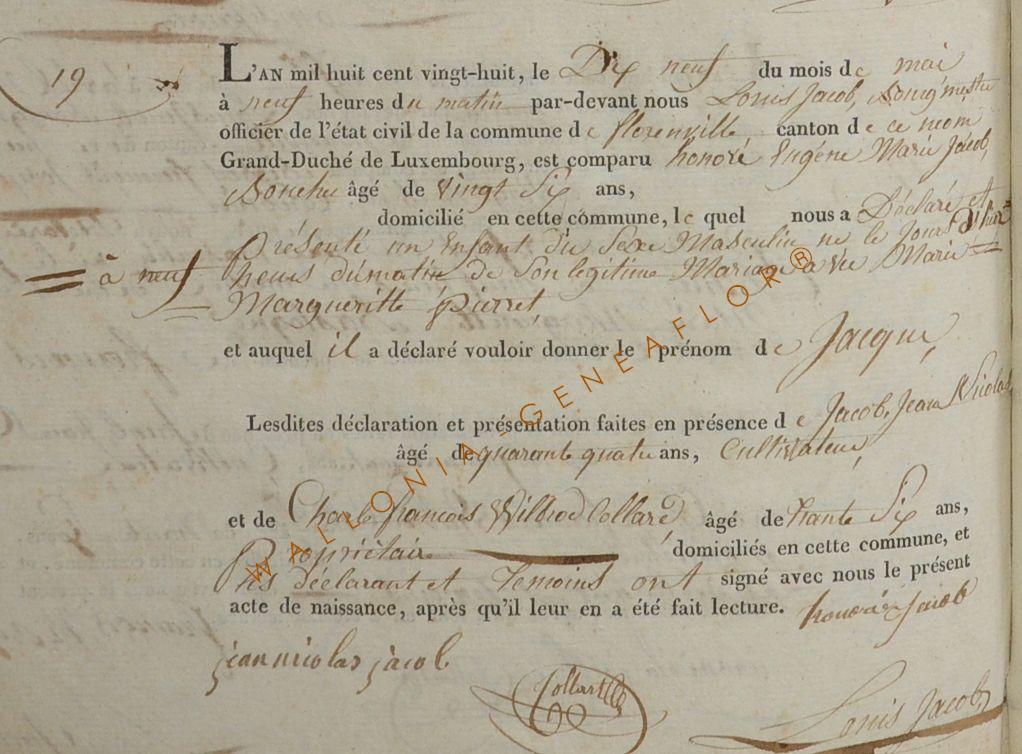 19
L'AN mil huit cent vingt-huit, le Dix neuf du mois de mai
à neuf heures du matin par-devant nous Louis Jacob, Bourgmestre
officier de l'état civil de la commune de florenville canton de ce nom
Grand-Duché de Luxembourg, est comparu honoré Eugéne Marie Jacob,
âgé de vingt Six ans,
domicilié en cette commune, le quel nous a Déclaré et
Présenté un Enfant du Séxe Masculin né le Jours d'hier
à neuf heurs du matin de Son legitime Mariage avec Marie
Margueritte pierret,
et auquel il a déclaré vouloir donner le prénom de Jacque,
Lesdites déclaration et présentation faites en présence de Jacob, Jean Nicolas
âgé de quarante quatre ans, Cultivateur,
et de Charle francois Willbrod Collard âgé de trante Six ans,
Propriétaire domiciliés en cette commune, et
les déclarant et temoins ont signé avec nous le présent
acte de naissance, après qu'il leur en a été fait lecture. honoré jacob
jean nicolas jacob
Collard
Louis Jacob,
WALLONIA-GENEAFLOR®